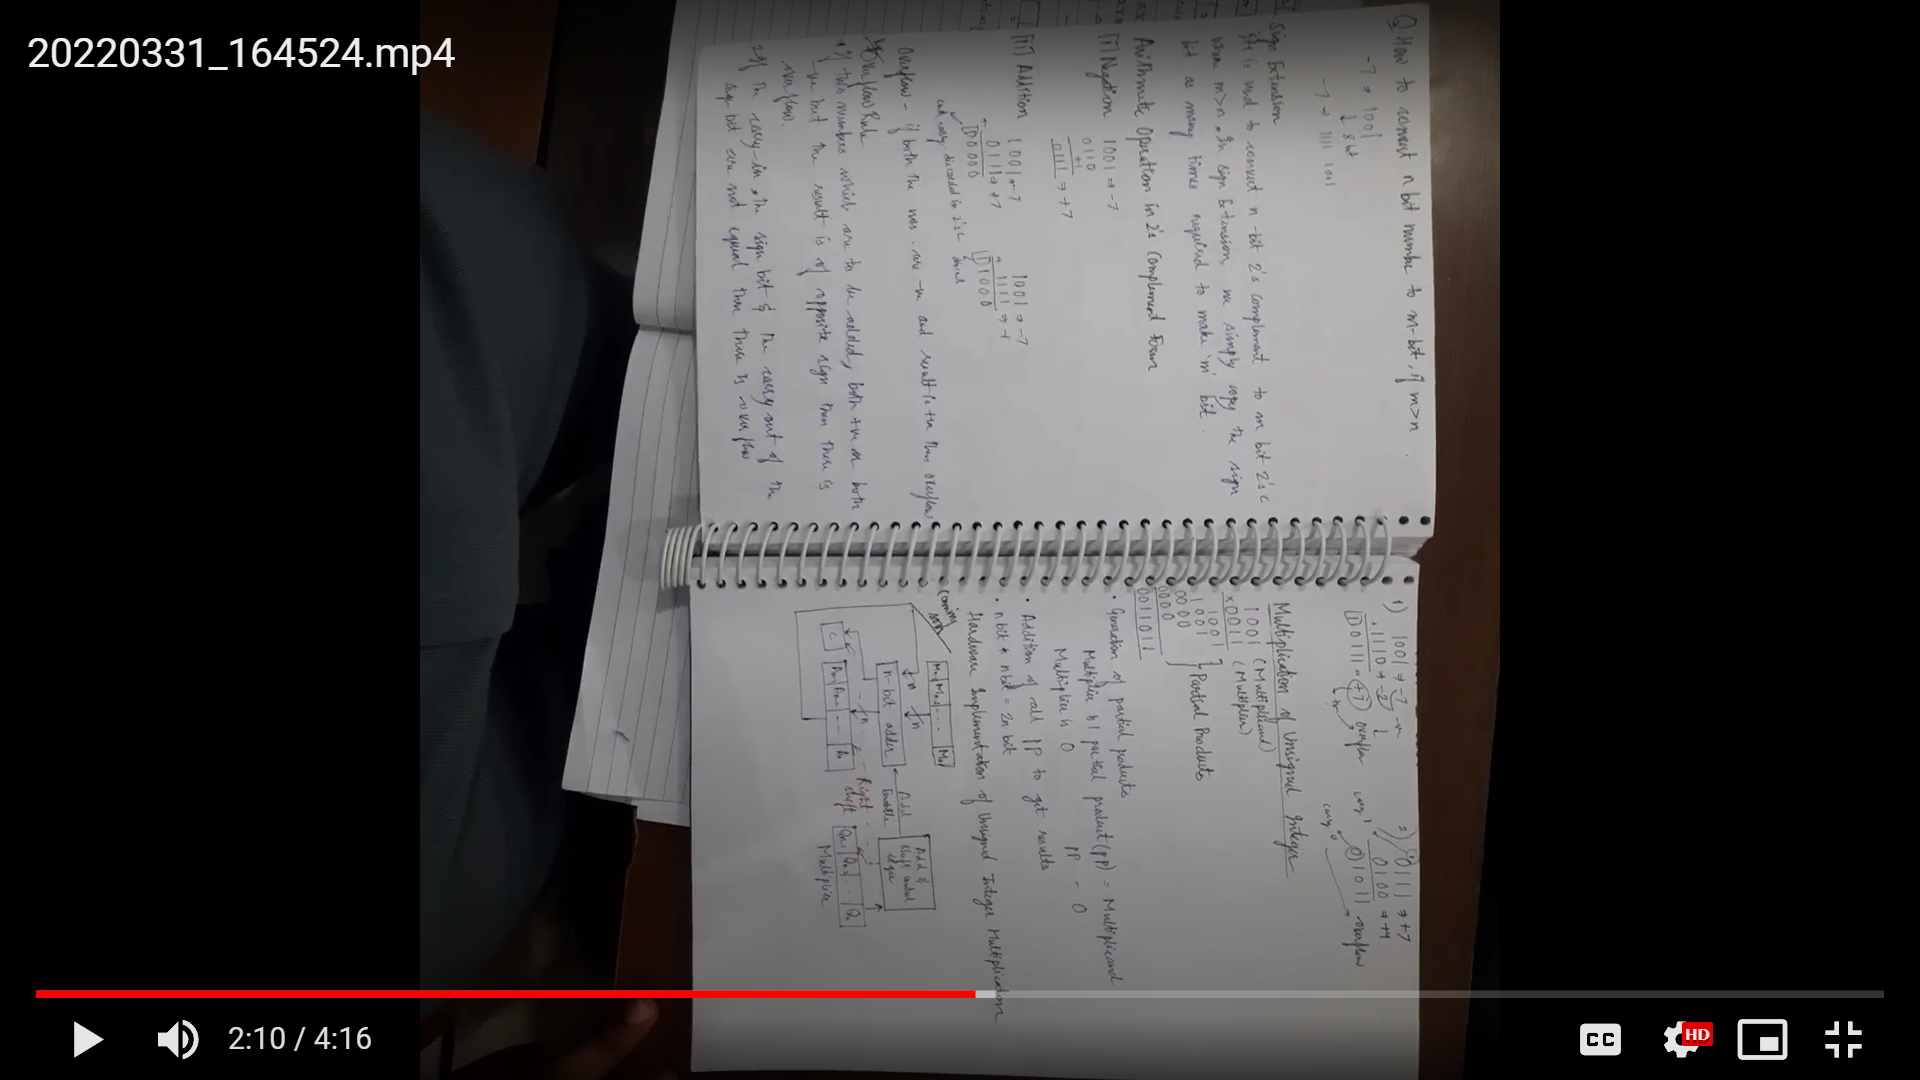 20220331_164524.mp4
Q How to convert n bit number to m-bit, if m>n.
-7 → 1001
↓ 8 bit
-7 → 1111 1001
Sign Extension
is used to convert n-bit 2's complement to m bit 2's c
where m>n. In sign Extension, we simply copy the sign
bit as many times required to make 'm' bit.
Arithmetic Operation in 2's Complement Form
[i] Negation 1001 ⇒ -7
0110
+1
0111 ⇒ +7
[ii] Addition 1001 → -7
+ 0111 → +7
[1] 0000
end carry discarded in 2's c
1001 → -7
+ 1111 → -1
[1] 1000
Overflow - if both the nos. are -ve and result is +ve then overflow
Overflow Rule
1) if two numbers which are to be added, both +ve or both
-ve but the result is of opposite sign then there is
overflow.
2) if the carry-in the sign bit & the carry out of the
sign bit are not equal then there is overflow
1) 1001 → -7
+ 1110 → -2
[1] 0111 → +7 overflow
2) 0111 → +7
0100 → +4
1011 overflow
carry 1
carry 0
Multiplication of Unsigned Integer
1001 (Multiplicand)
x0011 (Multiplier)
1001
1001
0000
0000
0011011
} Partial Products
• Generation of partial products
Multiplier is 1 partial product (PP) = Multiplicand
Multiplier is 0 PP - 0
• Addition of all PP to get results
• n bit * n bit = 2n bit
Hardware Implementation of Unsigned Integer Multiplication
n-bit adder
Add
Enable
Add &
shift control
logic
Right
shift
C
Multiplier
2:10 / 4:16
CC
HD